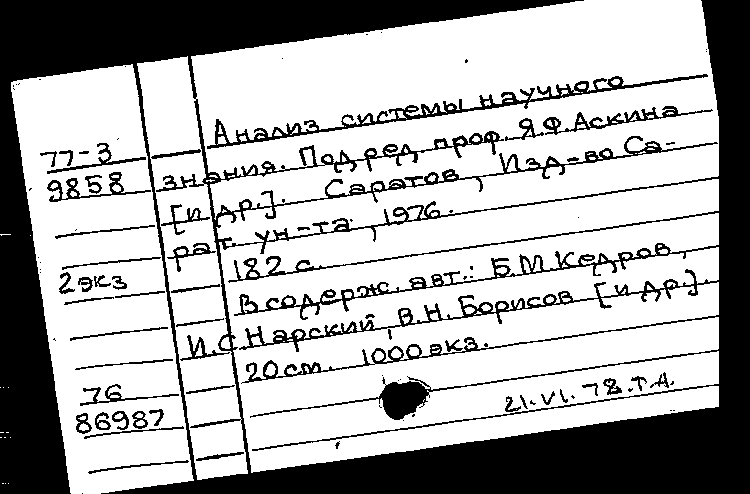 Анализ системы научного
77-3
9858
знания. Под ред. проф. Я.Ф.Аскина
[и др.]. Саратов, Изд-во Са-
рат. ун-та, 1976.
2 экз
182 с.
В содерж. авт.: Б.М.Кедров,
И.С.Нарский, В.Н.Борисов [и др.].
20 см. 1000 экз.
76
86987
21.VI.78.Т.А.